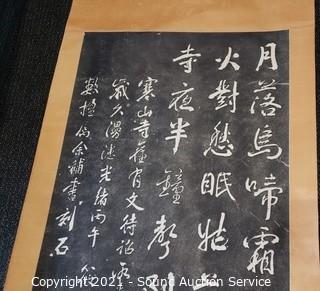 月落烏啼霜
火對愁眠姑
寺夜半鐘聲到
寒山寺舊有文待詔
歲久漫漶光緒丙午
數楹屬余補書刻石
Copyright 2021 - Sound Auction Service